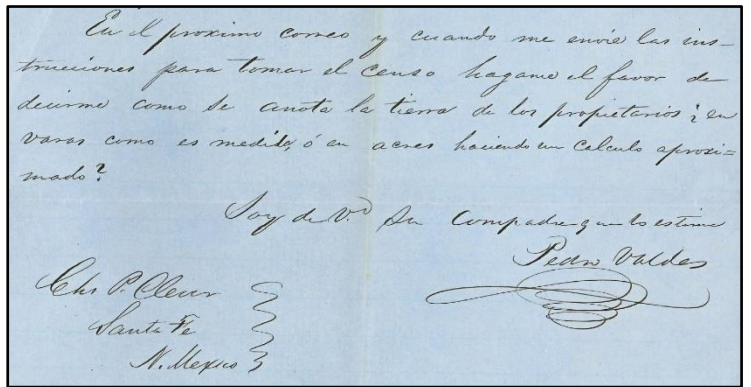 En el proximo correo y cuando me envie las ins-
trucciones para tomar el censo hagame el favor de
decirme como se anota la tierra de los propietarios ¿ en
varas como es medida, ó en acres haciendo un calculo aproxi=
mado?
Soy de V.d Su Compadre que lo estima
Pedro Valdes
Chs P. Clever
Santa Fe
N. Mexico